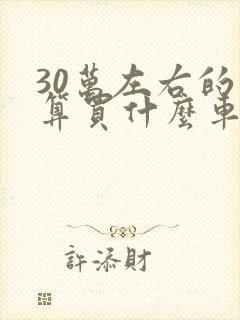 30萬左右的
算買什麼車
許添財